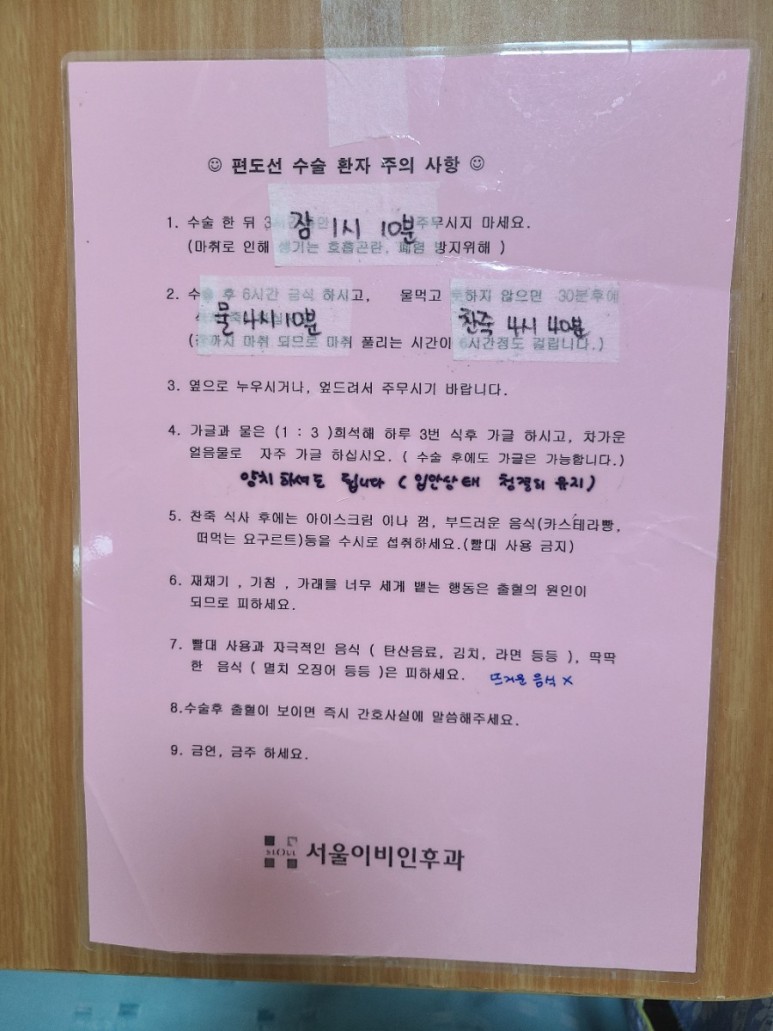 ☺ 편도선 수술 환자 주의 사항 ☺
1. 수술 한 뒤 3시간 주무시지 마세요.
잠 1시 10분
(마취로 인해 생기는 호흡곤란, 폐렴 방지위해 )
2. 수술 후 6시간 금식 하시고, 물먹고 토하지 않으면 30분후에
물 4시 10분
찬죽 4시 40분
마취 되므로 마취 풀리는 시간이 6시간정도 걸립니다.)
3. 옆으로 누우시거나, 엎드려서 주무시기 바랍니다.
4. 가글과 물은 (1 : 3 )희석해 하루 3번 식후 가글 하시고, 차가운
얼음물로 자주 가글 하십시오. ( 수술 후에도 가글은 가능합니다.)
양치 하셔도 됩니다 ( 입안상태 청결히 유지 )
5. 찬죽 식사 후에는 아이스크림 이나 껌, 부드러운 음식(카스테라빵,
떠먹는 요구르트)등을 수시로 섭취하세요.(빨대 사용 금지)
6. 재채기 , 기침 , 가래를 너무 세게 뱉는 행동은 출혈의 원인이
되므로 피하세요.
7. 빨대 사용과 자극적인 음식 ( 탄산음료, 김치, 라면 등등 ), 딱딱
한 음식 ( 멸치 오징어 등등 )은 피하세요. 뜨거운 음식 x
8.수술후 출혈이 보이면 즉시 간호사실에 말씀해주세요.
9. 금연, 금주 하세요.
서울이비인후과